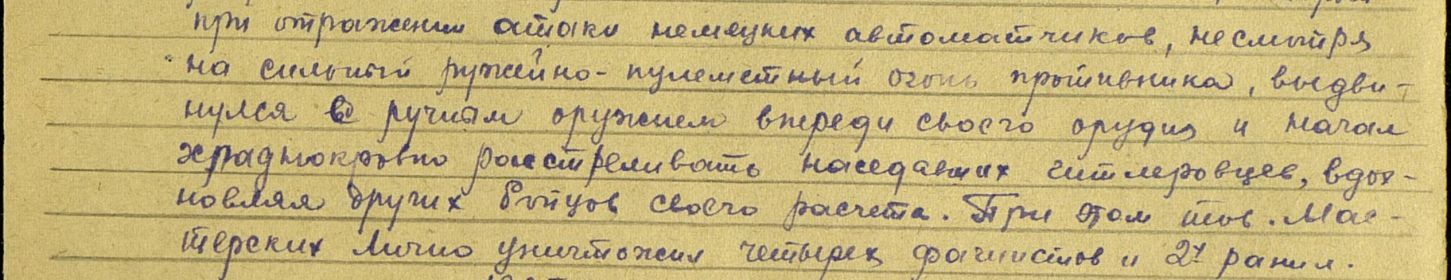 при отражении атаки немецких автоматчиков, несмотря
на сильный ружейно-пулеметный огонь противника, выдви-
нулся с ручным оружием впереди своего орудия и начал
хладнокровно расстреливать наседавших гитлеровцев, вдох-
новляя других бойцов своего расчета. При этом тов. Мас-
терских лично уничтожил четырех фашистов и 2х ранил.